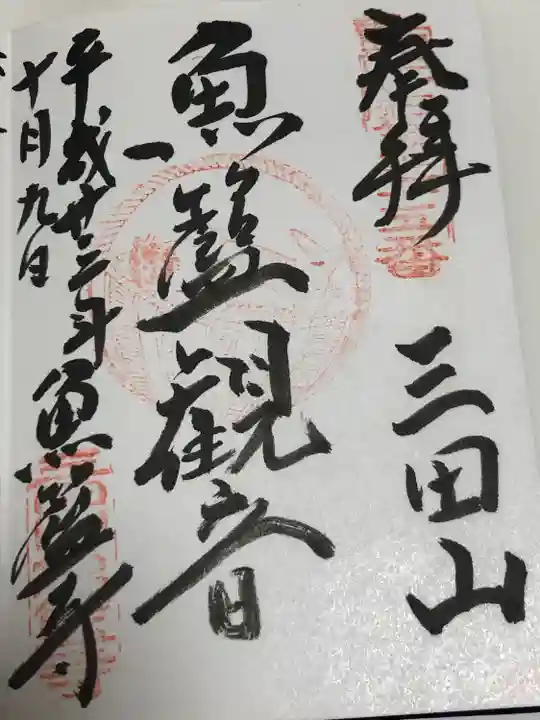 奉拝
三田山
魚籃観音
平成廿三年
十月九日
魚籃寺